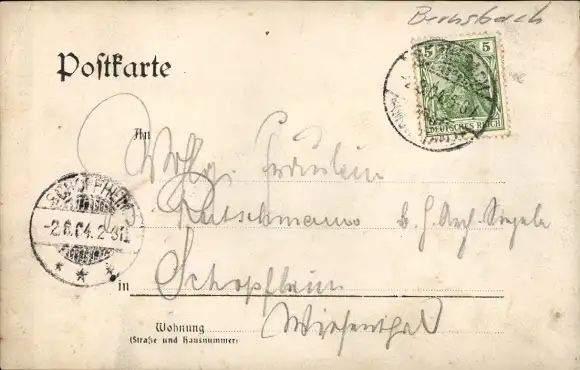 Bernsbach
Postkarte
5 5
DEUTSCHES REICH
An
Wohlg. Fräulein
Rutschmann b. H.
SCHOPFHEIM
-2.6.04. 2-3N.
in Schopfheim
Wiesenthal
Wohnung
(Straße und Hausnummer)